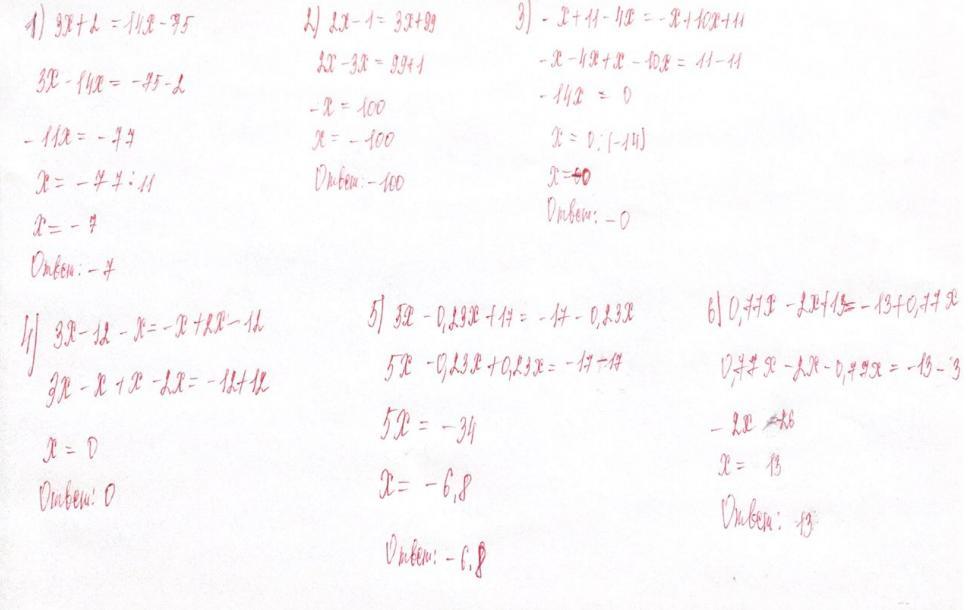 1) 3x+2 = 14x-75
3x-14x = -75-2
-11x = -77
x = -77:11
x = -7
Ответ: -7
2) 2x-1 = 3x+99
2x-3x = 99+1
-x = 100
x = -100
Ответ: -100
3) -x+11-4x = -x+10x+11
-x-4x+x-10x = 11-11
-14x = 0
x = 0:(-14)
x = 0
Ответ: -0
4) 3x-12-x = -x+2x-12
3x-x+x-2x = -12+12
x = 0
Ответ: 0
5) 5x-0,23x+17 = -17-0,23x
5x-0,23x+0,23x = -17-17
5x = -34
x = -6,8
Ответ: -6,8
6) 0,77x-2x+13 = -13+0,77x
0,77x-2x-0,77x = -13-3
-2x -26
x = 13
Ответ: 13